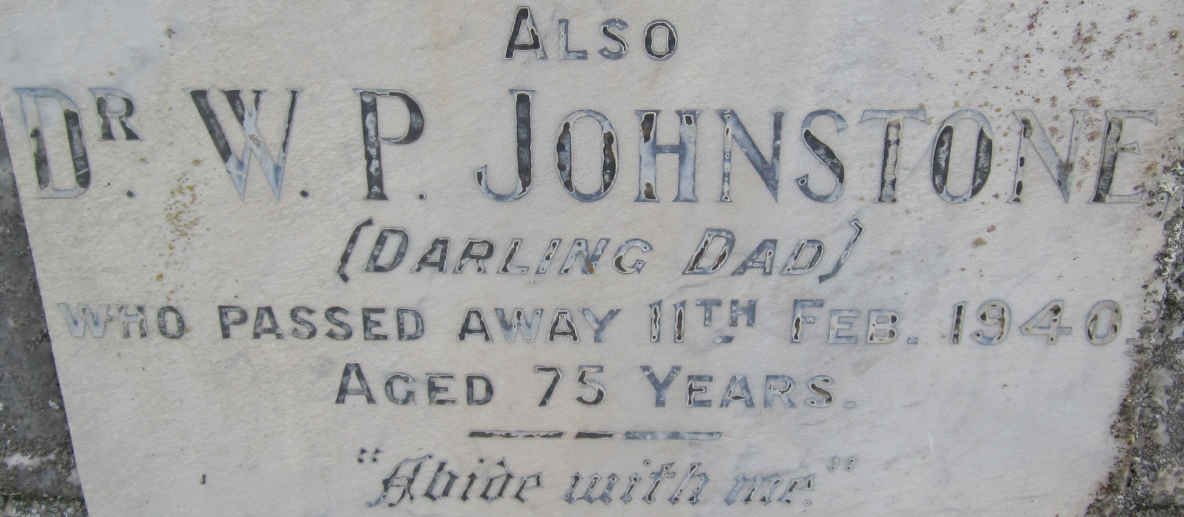 ALSO
DR. W. P. JOHNSTONE,
(DARLING DAD)
WHO PASSED AWAY 11TH FEB. 1940.
AGED 75 YEARS.
"Abide with me."